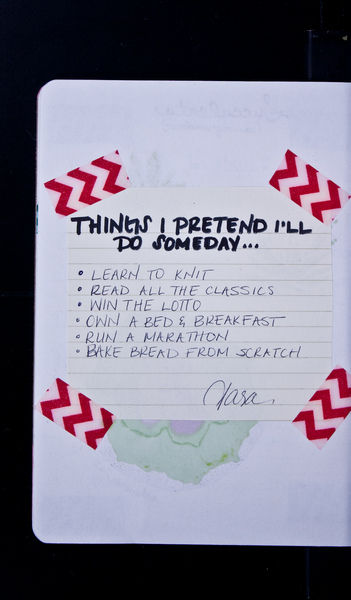 THINGS I PRETEND I'LL
DO SOMEDAY...
• LEARN TO KNIT
• READ ALL THE CLASSICS
• WIN THE LOTTO
• OWN A BED & BREAKFAST
• RUN A MARATHON
• BAKE BREAD FROM SCRATCH